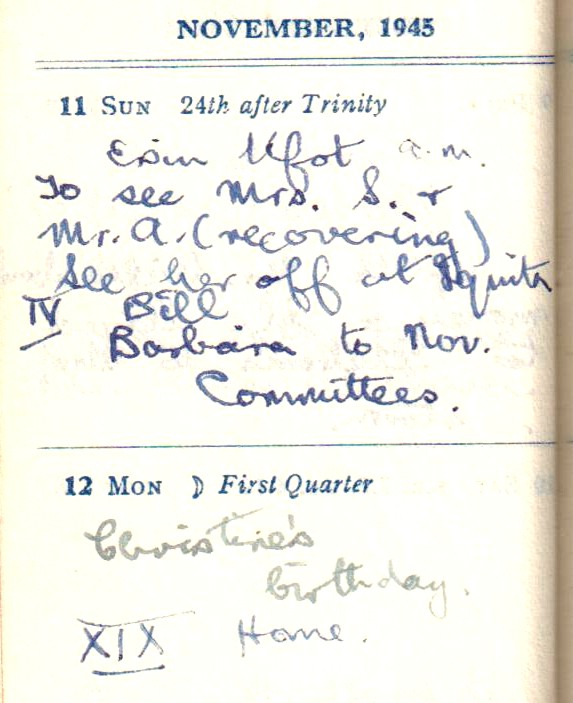 NOVEMBER, 1945
11 SUN 24th after Trinity
a.m.
To see Mrs. S. &
Mr. A. (recovering)
See her off at
IV Bill
Barbara to Nov.
Committees.
12 MON ☽ First Quarter
Christine's
birthday.
XIX Home.